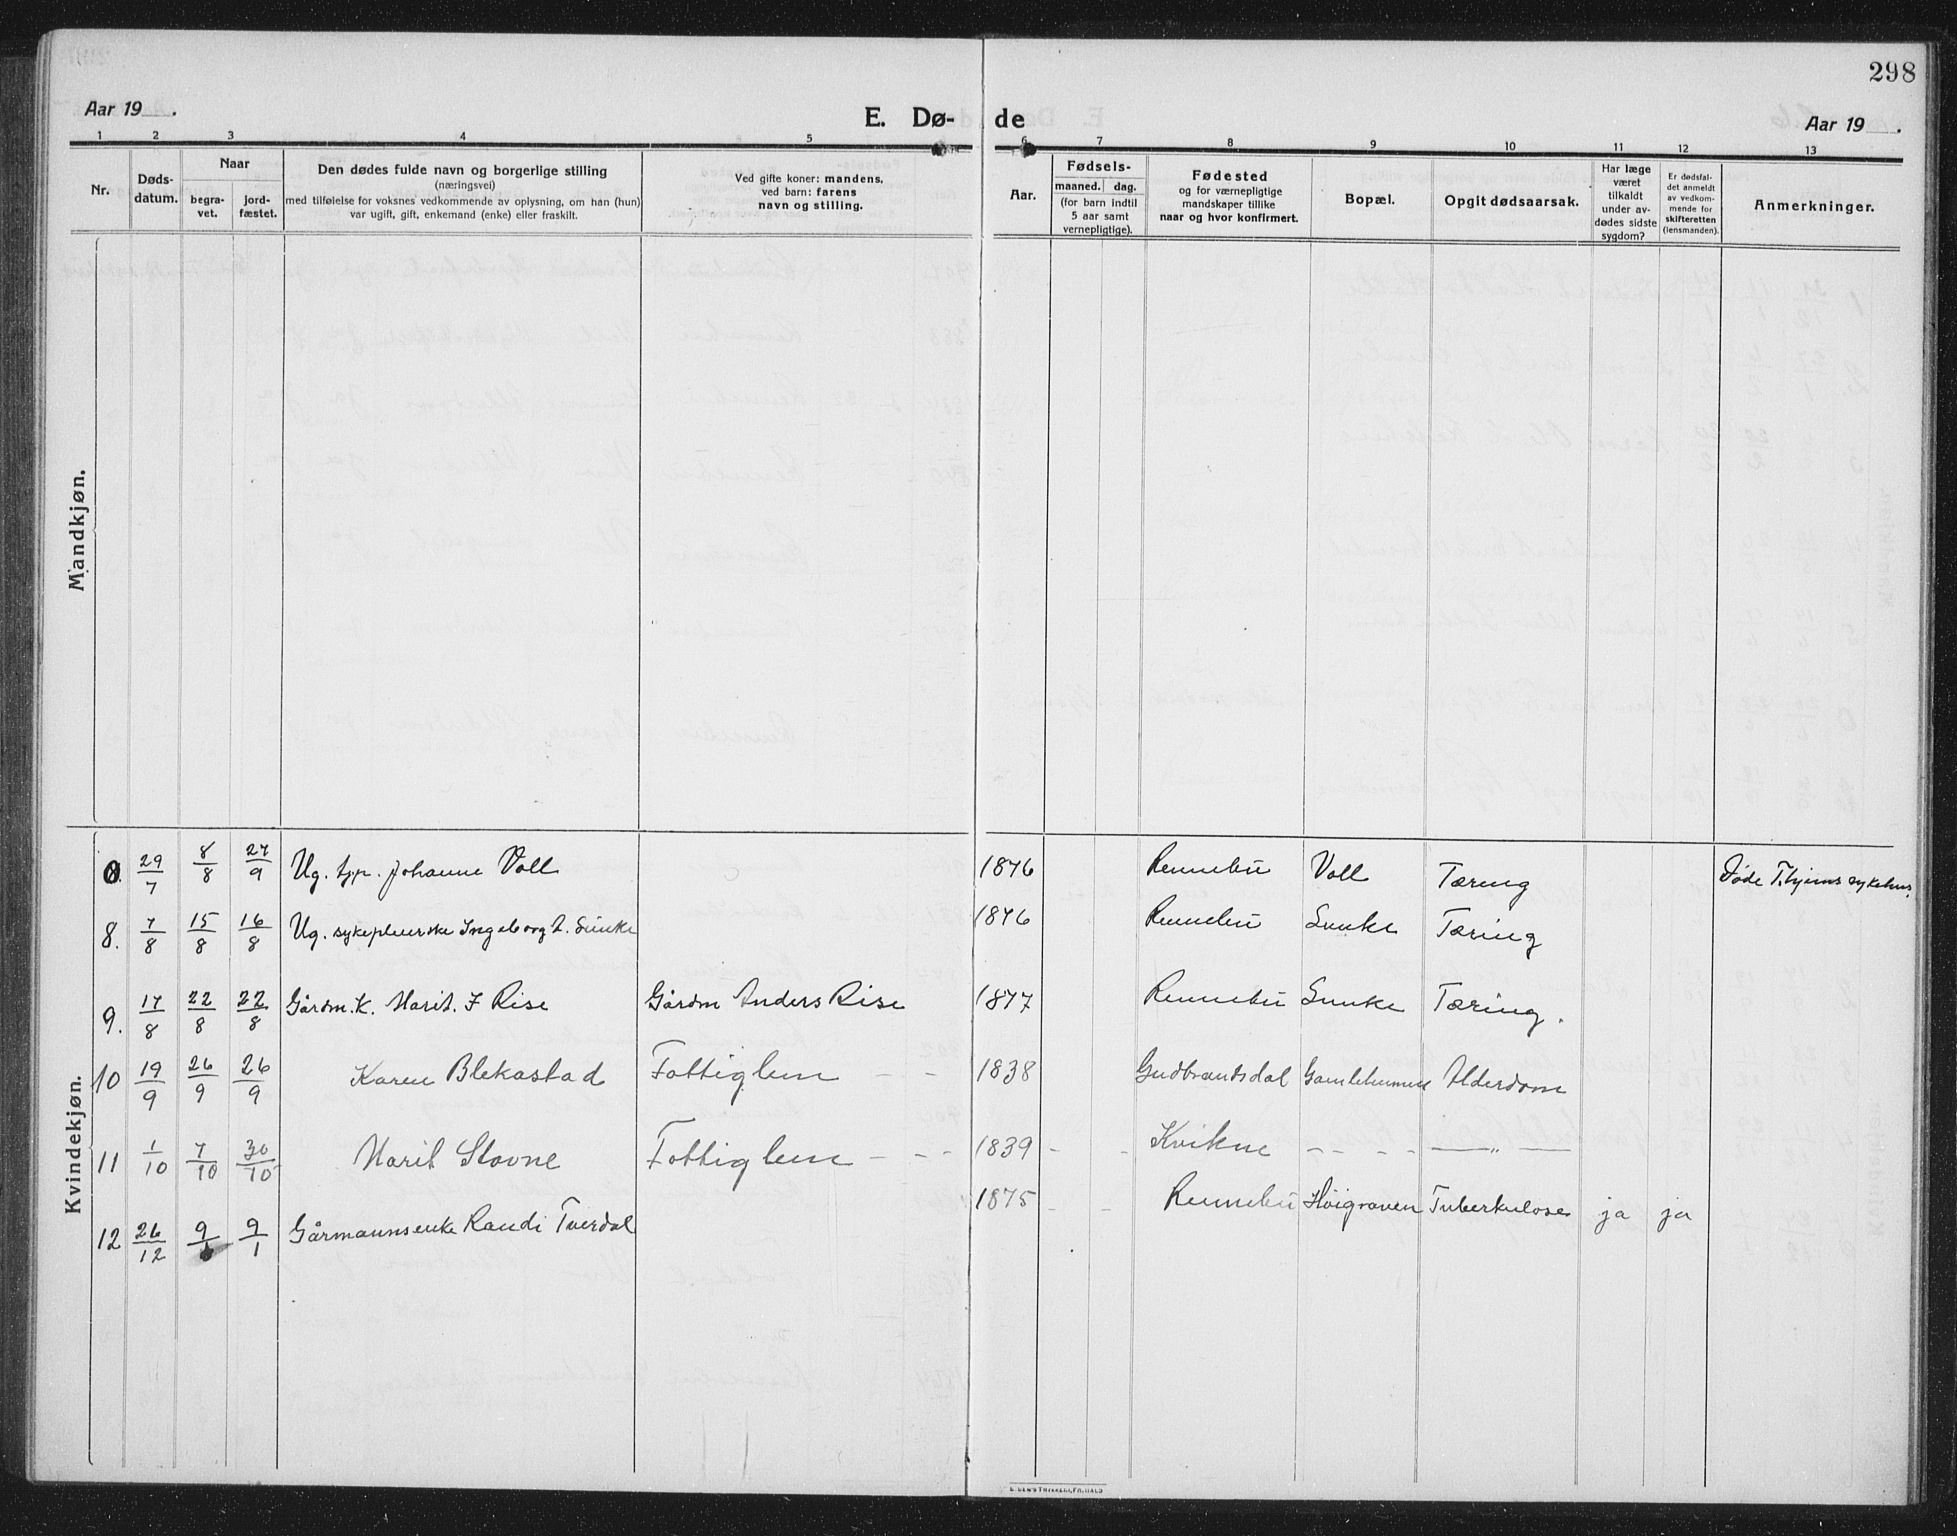 298
Aar 19 .
E. Dø-
de
Aar 19 .
1 2 3 4 5 6 7 8 9 10 11 12 13
Nr.
Døds-
datum.
Naar
begra-
vet.
jord-
fæstet.
Den dødes fulde navn og borgerlige stilling
(næringsvei)
med tilføielse for voksnes vedkommende av oplysning, om han (hun)
var ugift, gift, enkemand (enke) eller fraskilt.
Ved gifte koner: mandens,
ved barn: farens
navn og stilling.
Aar.
Fødsels-
maaned. dag.
(for barn indtil
5 aar samt
vernepligtige).
Fødested
og for værnepligtige
mandskaper tillike
naar og hvor konfirmert.
Bopæl.
Opgit dødsaarsak.
Har læge
været
tilkaldt
under av-
dødes sidste
sygdom?
Er dødsfal-
det anmeldt
av vedkom-
mende for
skifteretten
(lensmanden).
Anmerkninger.
Mandkjøn.
Kvindekjøn.
29/7 8/8 27/9 Ug. tjp. Johanne Voll 1876 Rennebu Voll Tæring Døde T.hjems sykehus.
8. 7/8 15/8 16/8 Ug. sykepleierske Ingeborg 1876 Rennebu Tæring
9. 17/8 22/8 22/8 Gårdm. K. Marit. J Rise Gårdm Anders Rise 1877 Rennebu Tæring.
10 19/9 26/9 26/9 Karen Blekastad Fattiglem - - 1838 Gudbrandsdal Alderdom
11 1/10 7/10 30/10 Marit Stavne Fattiglem - - - 1839 - - Kvikne - - - - — " —
12 26/12 9/1 9/1 Gårmannsenke Randi Tverdal 1875 - - Rennebu Høigraven Tuberkulose ja ja